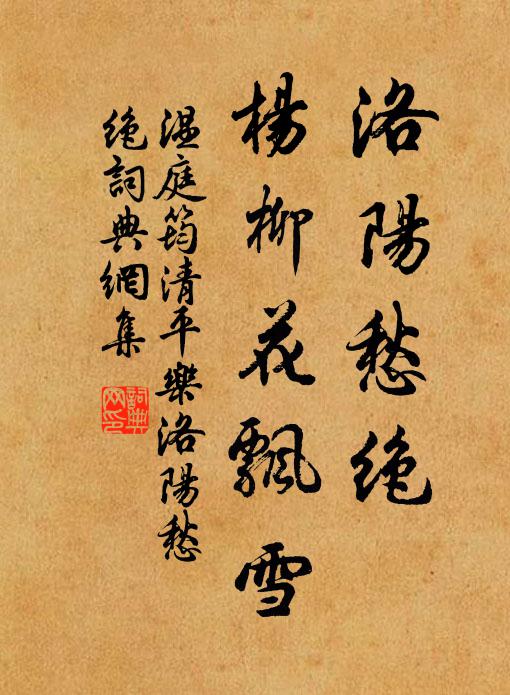 洛陽愁絶
楊柳花飄雪
温庭筠清平樂洛陽愁
絶詞典網集
詞典
网印